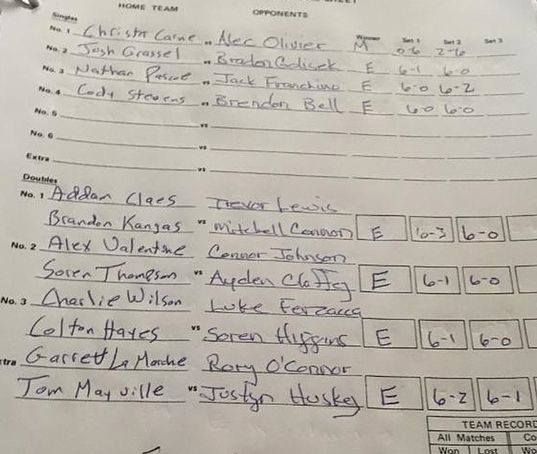 HOME TEAM OPPONENTS
Singles Winner Set 1 Set 2 Set 3
No. 1 Christa Carne vs Alec Olivier M 0-6 2-6
No. 2 Josh Grassel vs Bradon E 6-1 6-0
No. 3 Nathan Pascoe vs Jack Franchino E 6-0 6-2
No. 4 Cody Stevens vs Brendon Bell E 6-0 6-0
No. 5 vs
No. 6 vs
Extra vs
Doubles
No. 1 Addam Claes Trevor Lewis
Brandon Kangas vs Mitchell Cannon E 6-3 6-0
No. 2 Alex Valentine Connor Johnson
Soren Thompson vs Ayden E 6-1 6-0
No. 3 Charlie Wilson Luke Ferzacca
Colton Hayes vs Soren Higgins E 6-1 6-0
tra Garrett LaMarche Rory O'Connor
Tom Mayville vs Jostyn Huskey E 6-2 6-1
TEAM RECORD
All Matches Co
Won Lost Wo